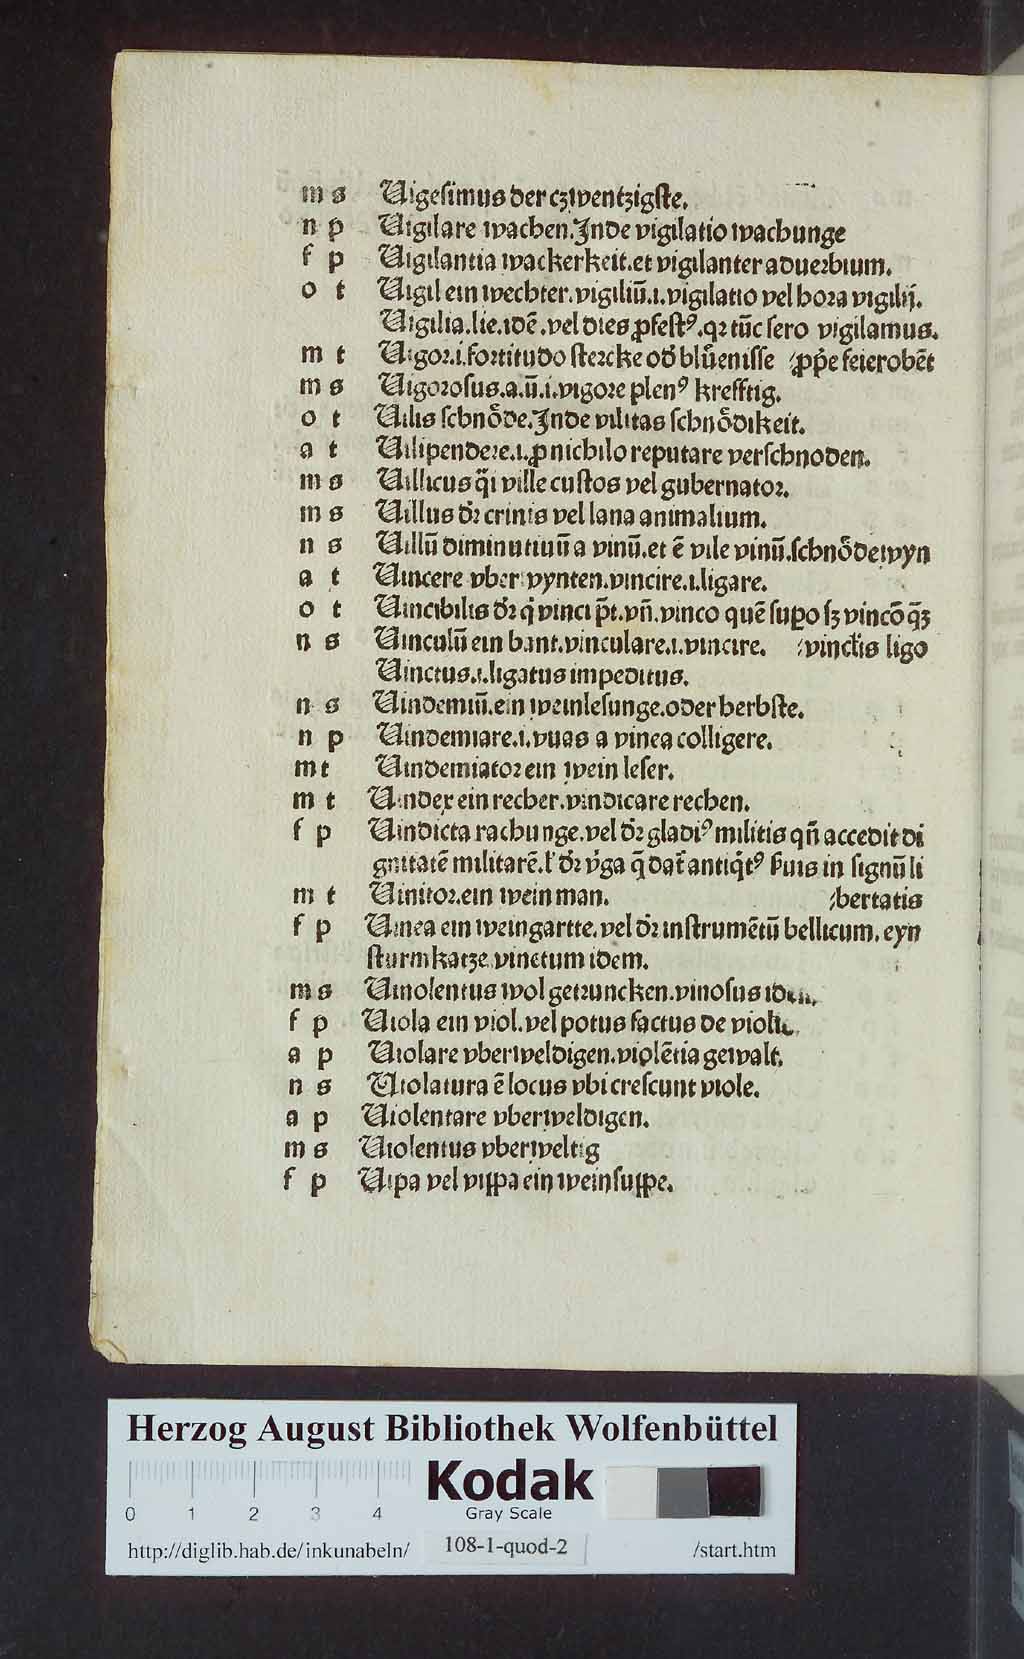 m s Uigesimus der czwentzigste.
n p Uigilare wachen. Inde vigilatio wachunge
f p Uigilantia wackerkeit. et vigilanter aduerbium.
o t Uigil ein wechter. vigiliū .i. vigilatio vel hora vigilij.
Uigilia .lie. idē. vel dies ꝓfestꝰ. qꝛ tūc sero vigilamus.
m t Uigor .i. fortitudo stercke od̕ blůenisse /ꝓp̄e feierobēt
m s Uigorosus .a.ū.i. vigore plenꝰ krefftig.
o t Uilis schnôde. Inde vilitas schnôdikeit.
a t Uilipendere .i. ꝓ nichilo reputare verschnoden.
m s Uillicus q̄i ville custos vel gubernator.
m s Uillus dꝛ̄ crinis vel lana animalium.
n s Uillū diminutiuū a vinū. et ē vile vinū. schnôde wyn
a t Uincere vber wynten. vincire .i. ligare.
o t Uincibilis dꝛ̄ q̇ vinci p̄t. vn̄. vinco quē supo sꝫ vincō q̄ꝫ
n s Uinculū ein bant. vinculare .i. vincire. /vinctis ligo
Uinctus .i. ligatus impeditus.
n s Uindemiū. ein weinlesunge. oder herbste.
n p Uindemiare .i. vuas a vinea colligere.
m t Uindemiator ein wein leser.
m t Uindex ein recher. vindicare rechen.
f p Uindicta rachunge. vel dꝛ̄ gladiꝰ militis qn̄ accedit di
gnitatē militarē. l̕ dꝛ̄ v̕ga q̄ dat̕ antiq̇tꝰ s̕uis in signū li
m t Uinitor. ein wein man. /bertatis
f p Uinea ein weingartte. vel dꝛ̄ instrumētū bellicum. eyn
sturmkatze vinetum idem.
m s Uinolentus wol getruncken. vinosus idem.
f p Uiola ein viol. vel potus factus de violis.
a p Uiolare vberweldigen. violētia gewalt.
n s Uiolatura ē locus vbi crescunt viole.
a p Uiolentare vberweldigen.
m s Uiolentus vberweltig
f p Uipa vel vippa ein weinsuppe.
Herzog August Bibliothek Wolfenbüttel
Kodak
Gray Scale
0 1 2 3 4
http://diglib.hab.de/inkunabeln/ 108-1-quod-2 /start.htm